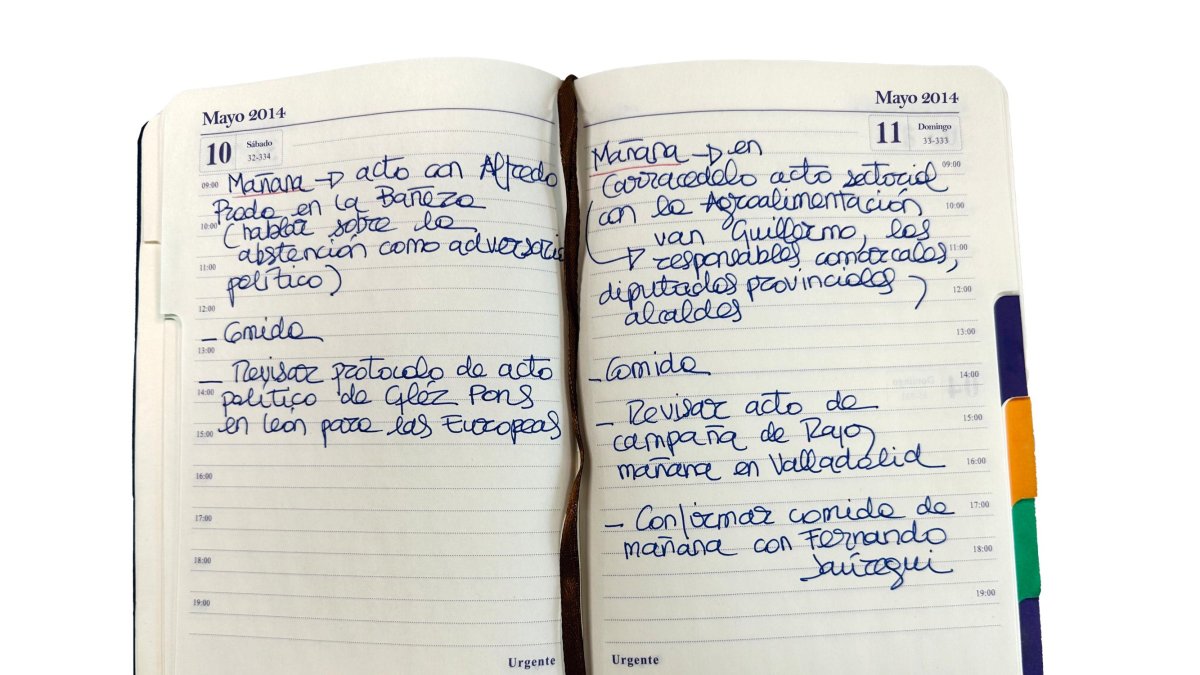 Mayo 2014
10
Sábado
32-334
09:00
Mañana → acto con Alfredo
Prada en La Bañeza
10:00
(hablar sobre la
abstención como adversario
11:00
político)
12:00
- Comida
13:00
- Revisar protocolo de acto
14:00
político de Gléz Pons
en León para las Europeas
15:00
16:00
17:00
18:00
19:00
Urgente
Mayo 2014
11
Domingo
33-333
Mañana → en
09:00
Carracedelo acto sectorial
10:00
con la Agroalimentación
van Guillermo, los
11:00
→ responsables comarcales,
diputados provinciales,
12:00
alcaldes
13:00
- Comida
14:00
- Revisar acto de
15:00
campaña de Rajoy
mañana en Valladolid
16:00
17:00
- Confirmar comida de
mañana con Fernando
18:00
Jaúregui
19:00
Urgente